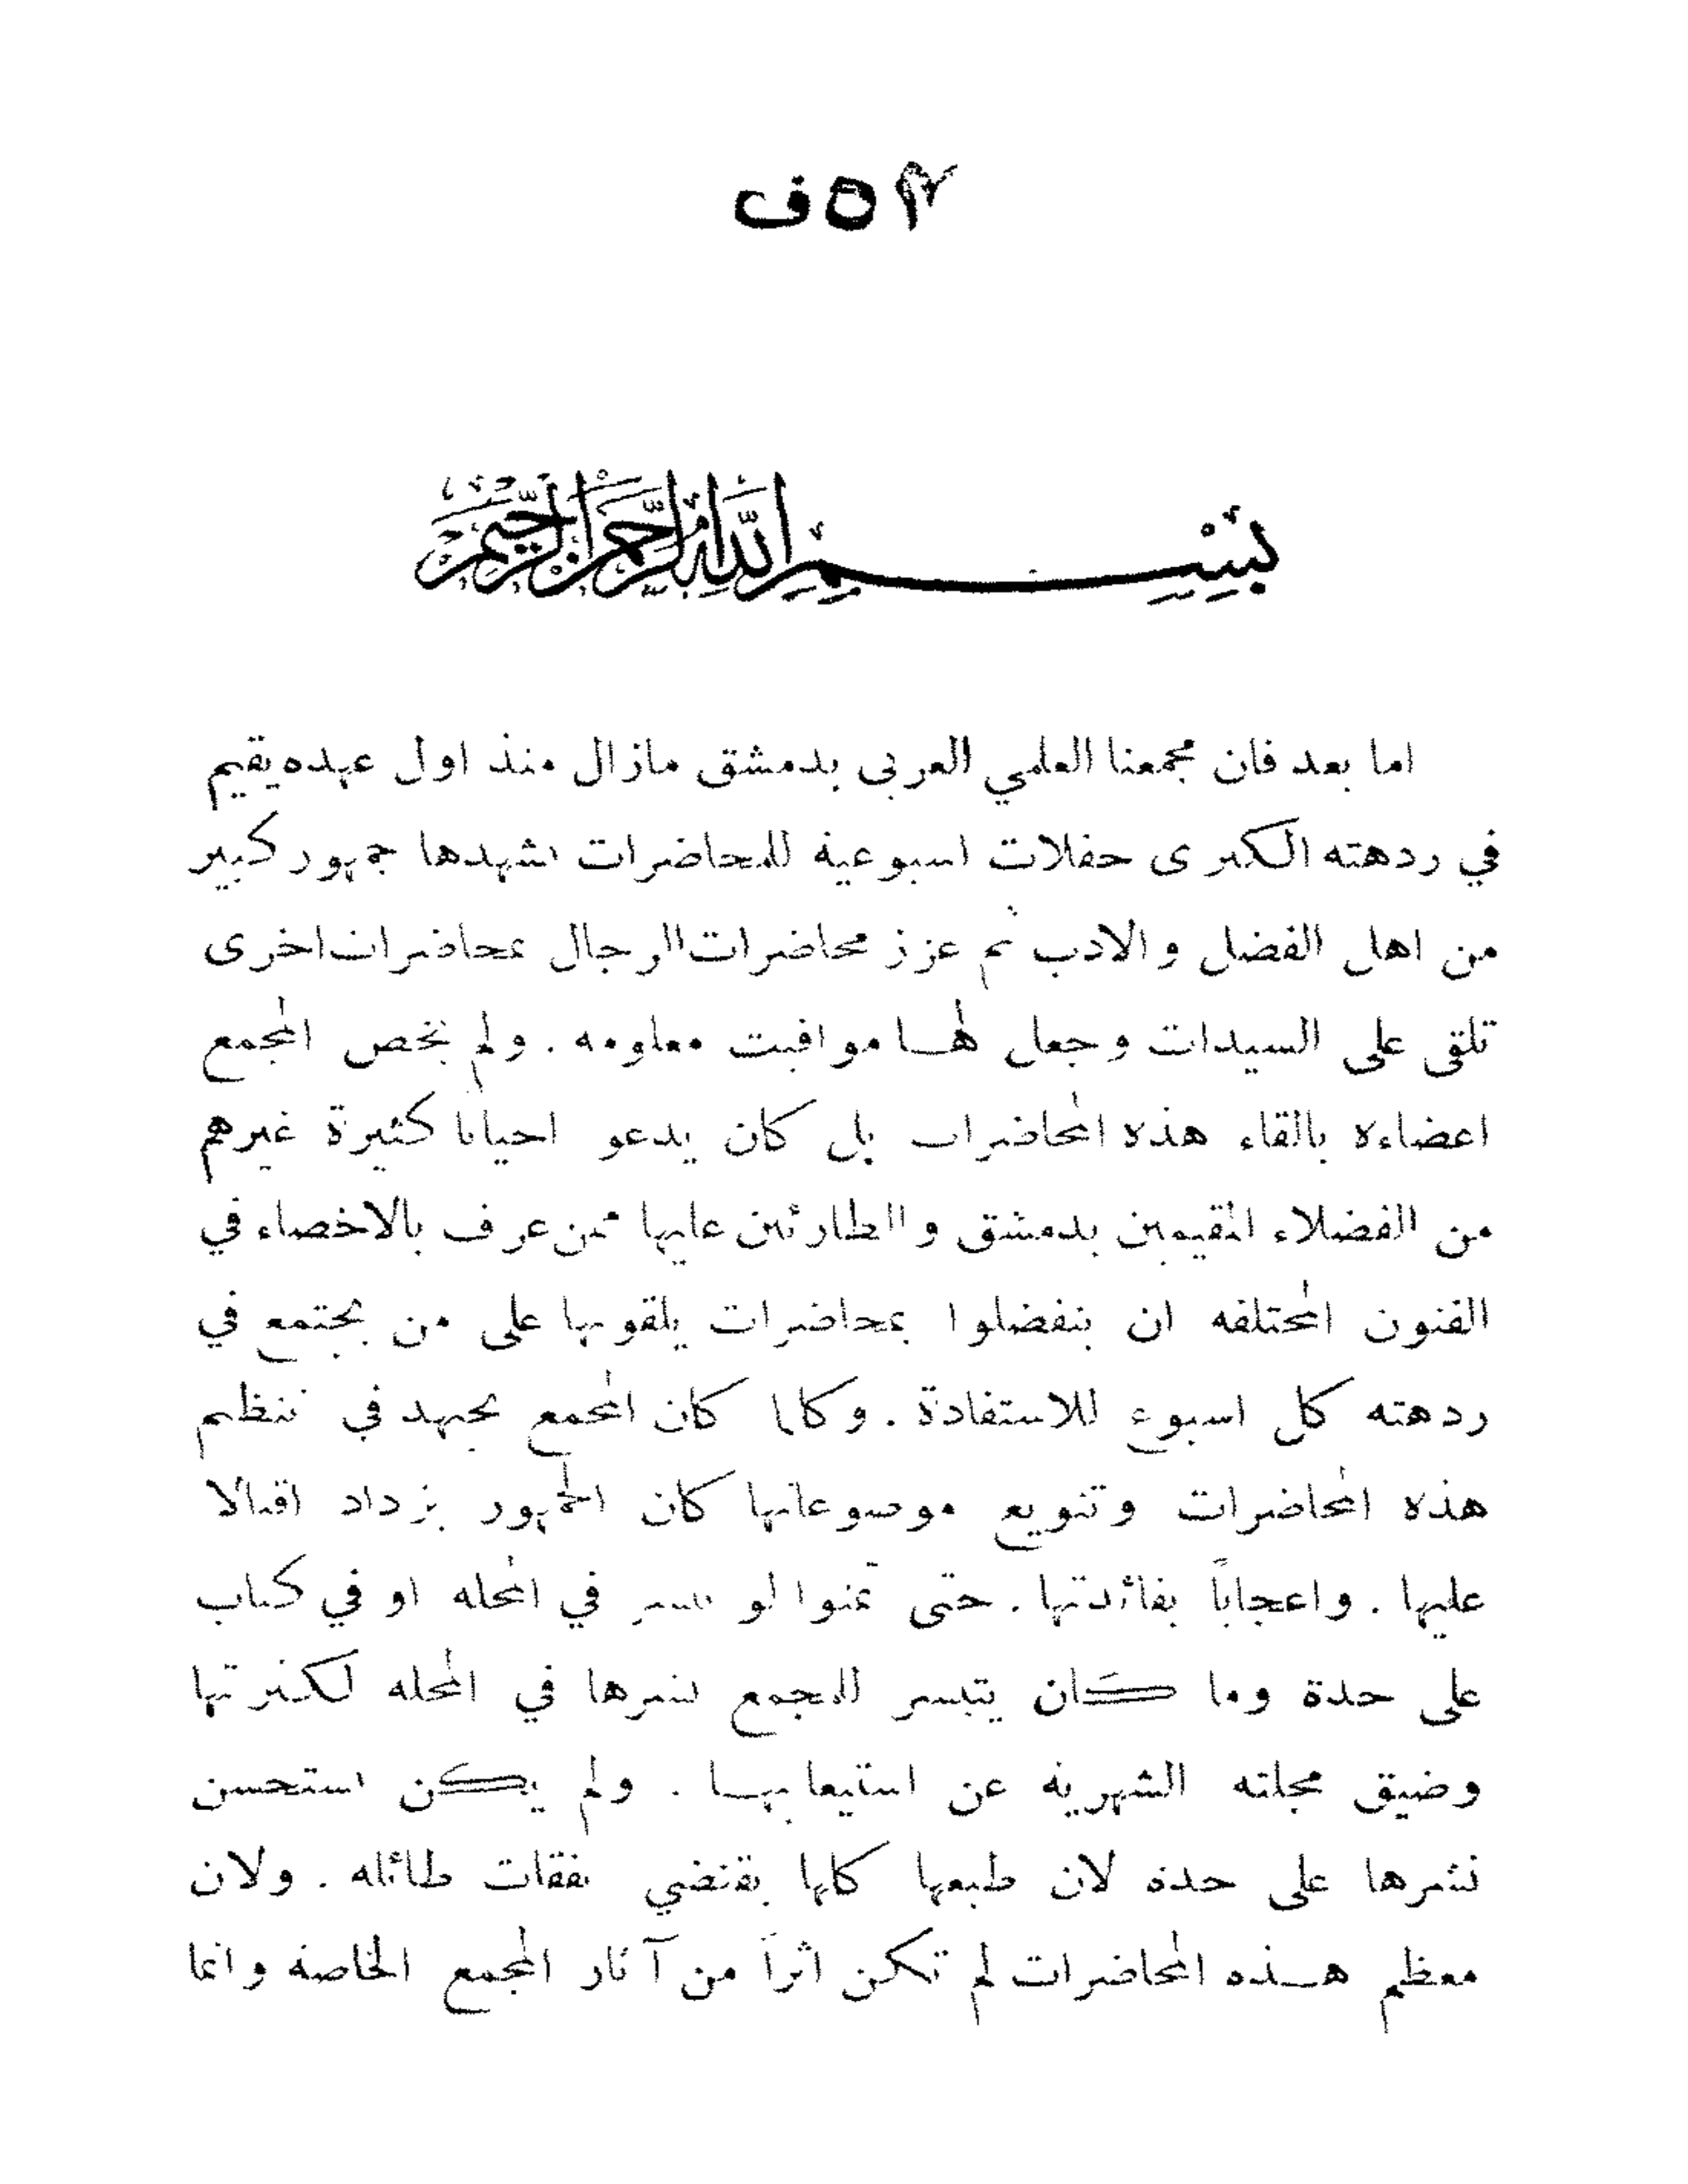 بسم الله الرحمن الرحيم
اما بعد فان مجمعنا العلمي العربي بدمشق مازال منذ اول عهده يقيم
في ردهته الكبرى حفلات اسبوعية للمحاضرات تشهدها جمهور كبير
من اهل الفضل والادب ثم عزز محاضرات الرجال بمحاضرات اخرى
تلقى على السيدات وجعل لها مواقيت معلومة . ولم يخص المجمع
اعضاءه بالقاء هذه المحاضرات بل كان يدعو احياناً كثيرة غيرهم
من الفضلاء المقيمين بدمشق والطارئين عليها ممن عرف بالاخصاء في
الفنون المختلفة ان يتفضلوا بمحاضرات يلقونها على من يجتمع في
ردهته كل اسبوع للاستفادة . وكلما كان المجمع يجهد في تنظيم
هذه المحاضرات وتنويع موضوعاتها كان الجمهور يزداد اقبالا
عليها . واعجاباً بفائدتها . حتى تمنوا لو تنشر في المجلة او في كتاب
على حدة وما كان يتيسر للمجمع نشرها في المجلة لكثرتها
وضيق مجلته الشهرية عن استيعابها . ولم يكن استحسن
نشرها على حدة لان طبعها كلها يقتضي نفقات طائلة . ولان
معظم هذه المحاضرات لم تكن اثراً من آثار المجمع الخاصة وانما